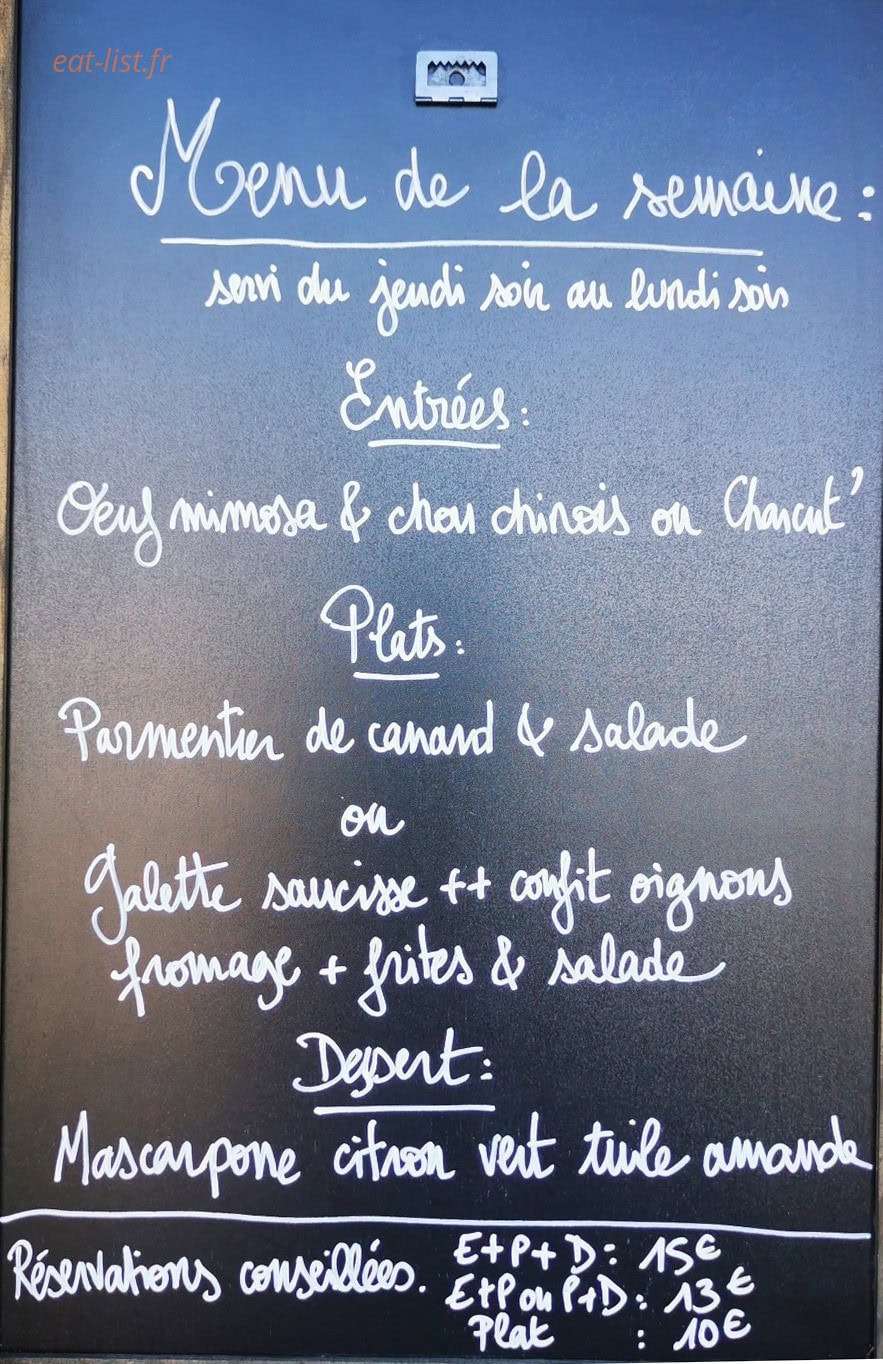 eat-list.fr
Menu de la semaine :
servi du jeudi soir au lundi soir
Entrées :
Oeuf mimosa & chou chinois ou Charcut'
Plats :
Parmentier de canard & salade
ou
galette saucisse ++ confit oignons
fromage + frites & salade
Dessert :
Mascarpone citron vert tuile amande
Réservations conseillées.
E+P+D : 15€
E+P ou P+D : 13€
Plat : 10€